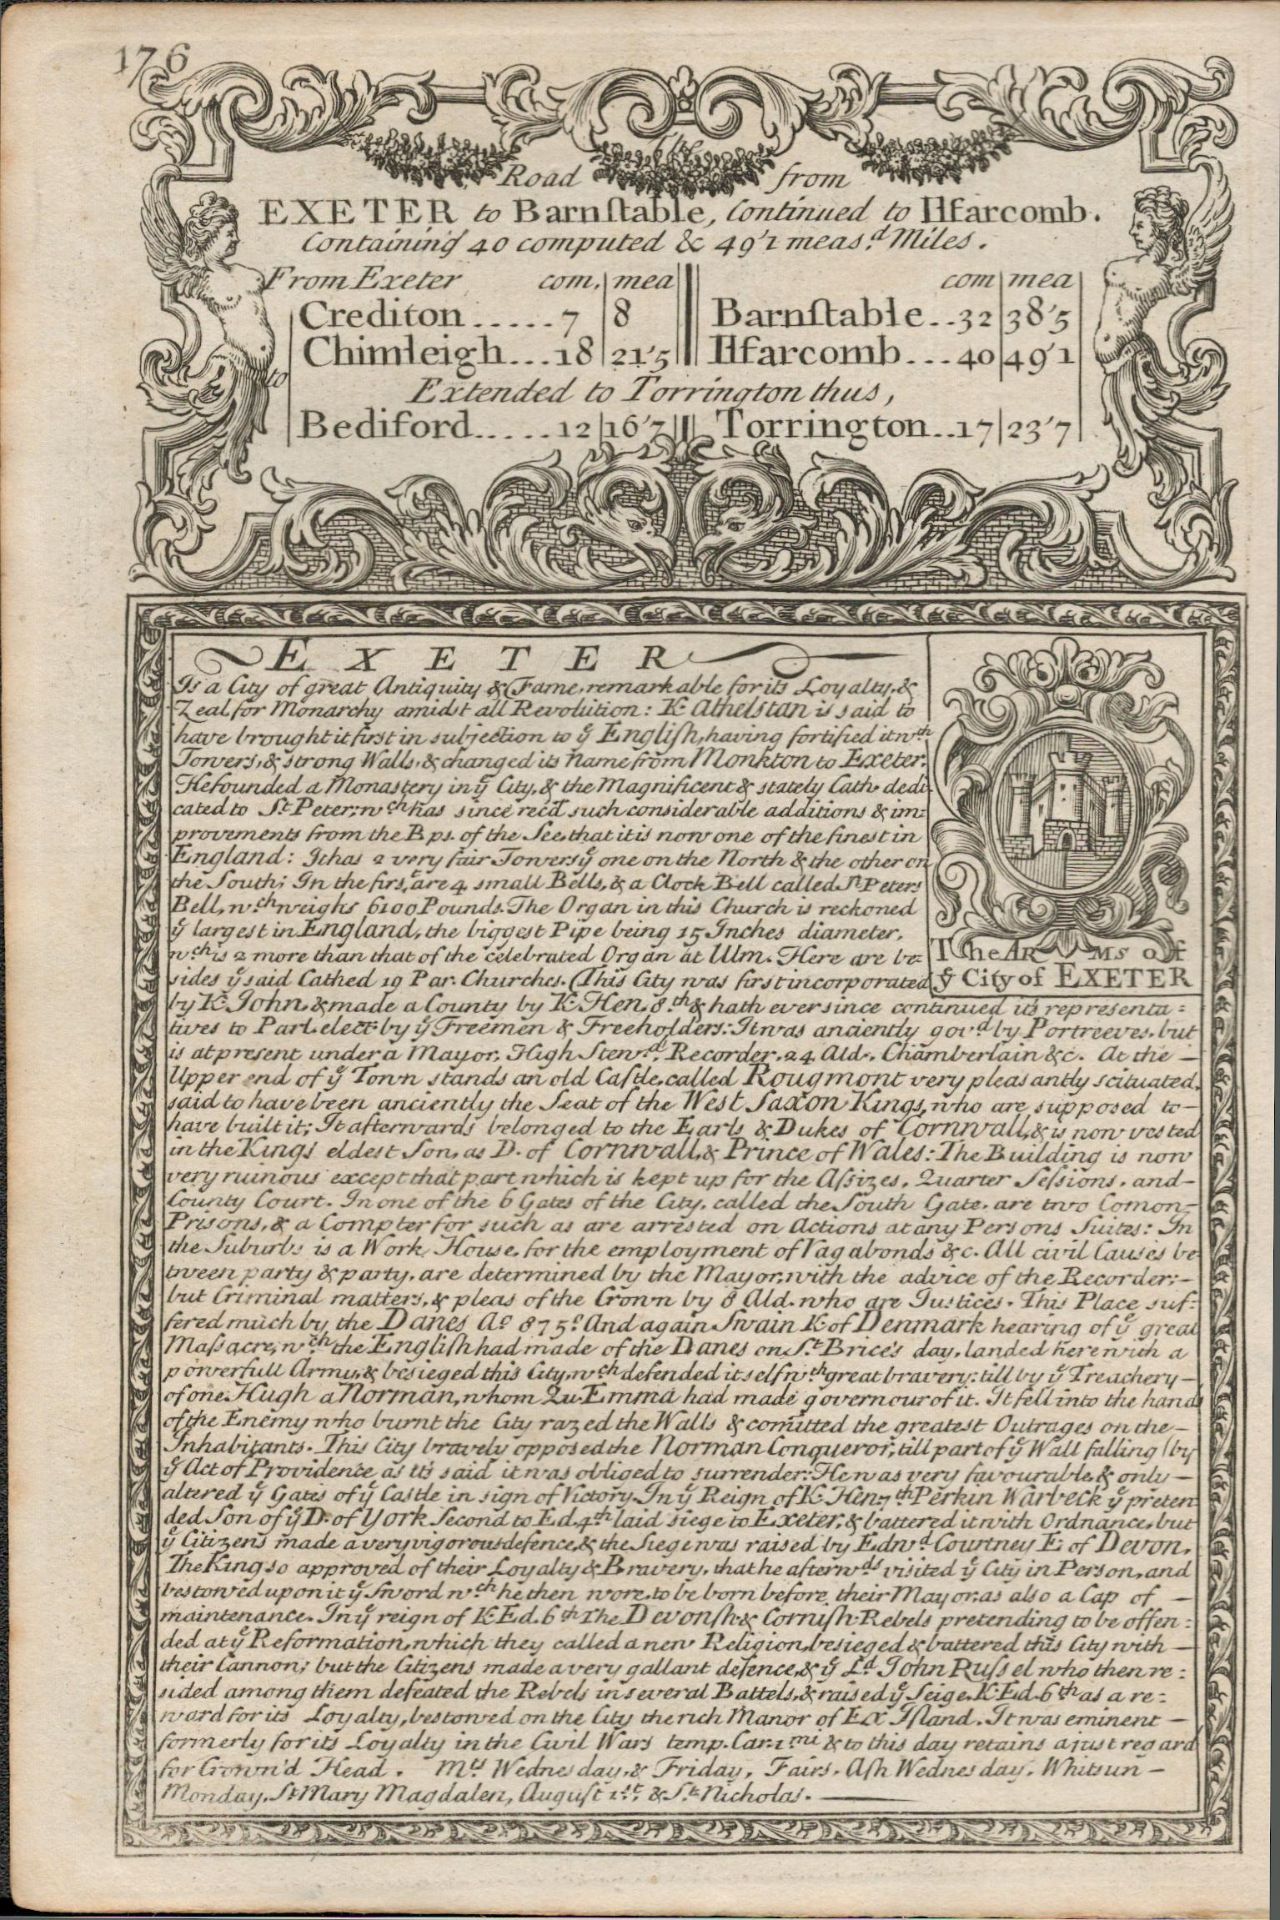 176
The
Road from
EXETER to Barnſtable, Continued to Ilfarcomb.
Containing 40 computed & 49'1 meas.d Miles.
From Exeter com. mea com mea
to Crediton.....7 8 Barnſtable..32 38'5
Chimleigh...18 21'5 Ilfarcomb...40 49'1
Extended to Torrington thus,
Bediford.....12 16'7 Torrington..17 23'7
EXETER
Is a City of great Antiquity & Fame, remarkable for its Loyalty, &
Zeal for Monarchy amidst all Revolution: K. Athelstan is said to
have brought it first in subjection to ye Engliſh, having fortified it wth
Towers, & strong Walls, & changed its name from Monkton to Exeter.
He founded a Monastery in ye City, & the Magnificent & stately Cath. dedi-
cated to St. Peter; wch has since rec'd such considerable additions & im:
provements from the Bps. of the See, that it is now one of the finest in
England: It has 2 very fair Towers ye one on the North & the other on
the South; In the first are 4 small Bells, & a Clock Bell called St. Peters
Bell, wch weighs 6100 Pounds. The Organ in this Church is reckoned
ye largest in England, the biggest Pipe being 15 Inches diameter,
wch is 2 more than that of the celebrated Organ at Ulm. Here are be-
sides ye said Cathed. 19 Par. Churches. (This City was first incorporated
by K. John, & made a County by K. Hen. 8th & hath ever since continued its representa:
tives to Parl. elect. by ye Freemen & Freeholders: It was anciently gov.d by Portreeves, but
is at present under a Mayor, High Stew.d, Recorder, 24 Ald., Chamberlain &c. At the —
Upper end of ye Town stands an old Caſtle, called Rougmont very pleasantly scituated,
said to have been anciently the Seat of the West Saxon Kings, who are supposed to—
have built it; It afterwards belonged to the Earls & Dukes of Cornwall, & is now vested
in the Kings eldest Son, as D. of Cornwall, & Prince of Wales: The Building is now
very ruinous except that part which is kept up for the Aſsizes, Quarter Seſsions, and—
County Court. In one of the 6 Gates of the City, called the South Gate, are two Comon—
Prisons, & a Compter for such as are arrested on Actions at any Persons Suites: In
the Suburbs is a Work House, for the employment of Vagabonds &c. All civil Causes be
tween party & party, are determined by the Mayor, with the advice of the Recorder;—
but Criminal matters, & pleas of the Crown by 8 Ald. who are Justices. This Place suf:
fered much by the Danes Ao. 875. And again Swain K. of Denmark hearing of ye great
Maſsacre, wch the Engliſh had made of the Danes on St. Brice's day, landed here with a
powerfull Army, & besieged this City, wch defended itself wth great bravery: till by ye Treachery—
of one Hugh a Norman, whom Qu. Emma had made governour of it. It fell into the hands
of the Enemy who burnt the City razed the Walls & comitted the greatest Outrages on the—
Inhabitants. This City bravely opposed the Norman Conqueror, till part of ye Wall falling (by
ye Act of Providence as its said it was obliged to surrender: He was very favourable, & only—
altered ye Gates of ye Castle in sign of Victory. In ye Reign of K. Hen. 7th Perkin Warbeck ye preten
ded Son of ye D. of York Second to Ed. 4th laid siege to Exeter, & battered it with Ordnance, but
ye Citizens made a very vigorous defence, & the Siege was raised by Edwd. Courtney E. of Devon,
The King so approved of their Loyalty & Bravery, that he afterwds visited ye City in Person, and
bestowed upon it ye Sword wch he then wore, to be born before their Mayor, as also a Cap of —
maintenance. In ye reign of K. Ed. 6th The Devonſh. & Corniſh Rebels pretending to be offen:
ded at ye Reformation, which they called a new Religion, besieged & battered this City with —
their Cannon; but the Citizens made a very gallant defence, & ye Ld. John Ruſsel who then re:
sided among them defeated the Rebels in several Battels, & raised ye Seige, K. Ed. 6th as a re:
ward for its Loyalty, bestowed on the City the rich Manor of Ex Iſland. It was eminent —
formerly for its Loyalty in the Civil Wars temp. Car. 1mi & to this day retains a just regard
for Crown'd Head. Mts. Wednesday, & Friday, Fairs. Aſh Wednesday, Whitsun —
Monday, St Mary Magdalen, August 1st. & St. Nicholas.
The ARMS of
ye City of EXETER